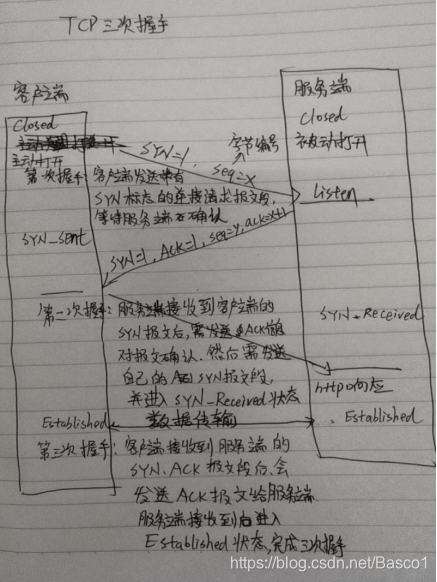 TCP三次握手
客户端
服务端
Closed
Closed
主动打开
被动打开
SYN=1,
seq=x
字节编号
第一次握手:客户端发送带有
SYN标志的连接请求报文段,
等待服务端的确认
Listen
SYN_Sent
SYN=1, Ack=1, seq=y, ack=x+1
第二次握手:服务端接收到客户端的
SYN报文后,需发送ACK信息
对报文确认.然后需发送
自己的SYN报文段,
并进入SYN_Received状态
SYN_Received
http响应
Established
数据传输
Established
第三次握手:客户端接收到服务端的
SYN.ACK报文段后,会
发送ACK报文给服务端.
服务端接收到后进入
Established状态,完成三次握手
https://blog.csdn.net/Basco1